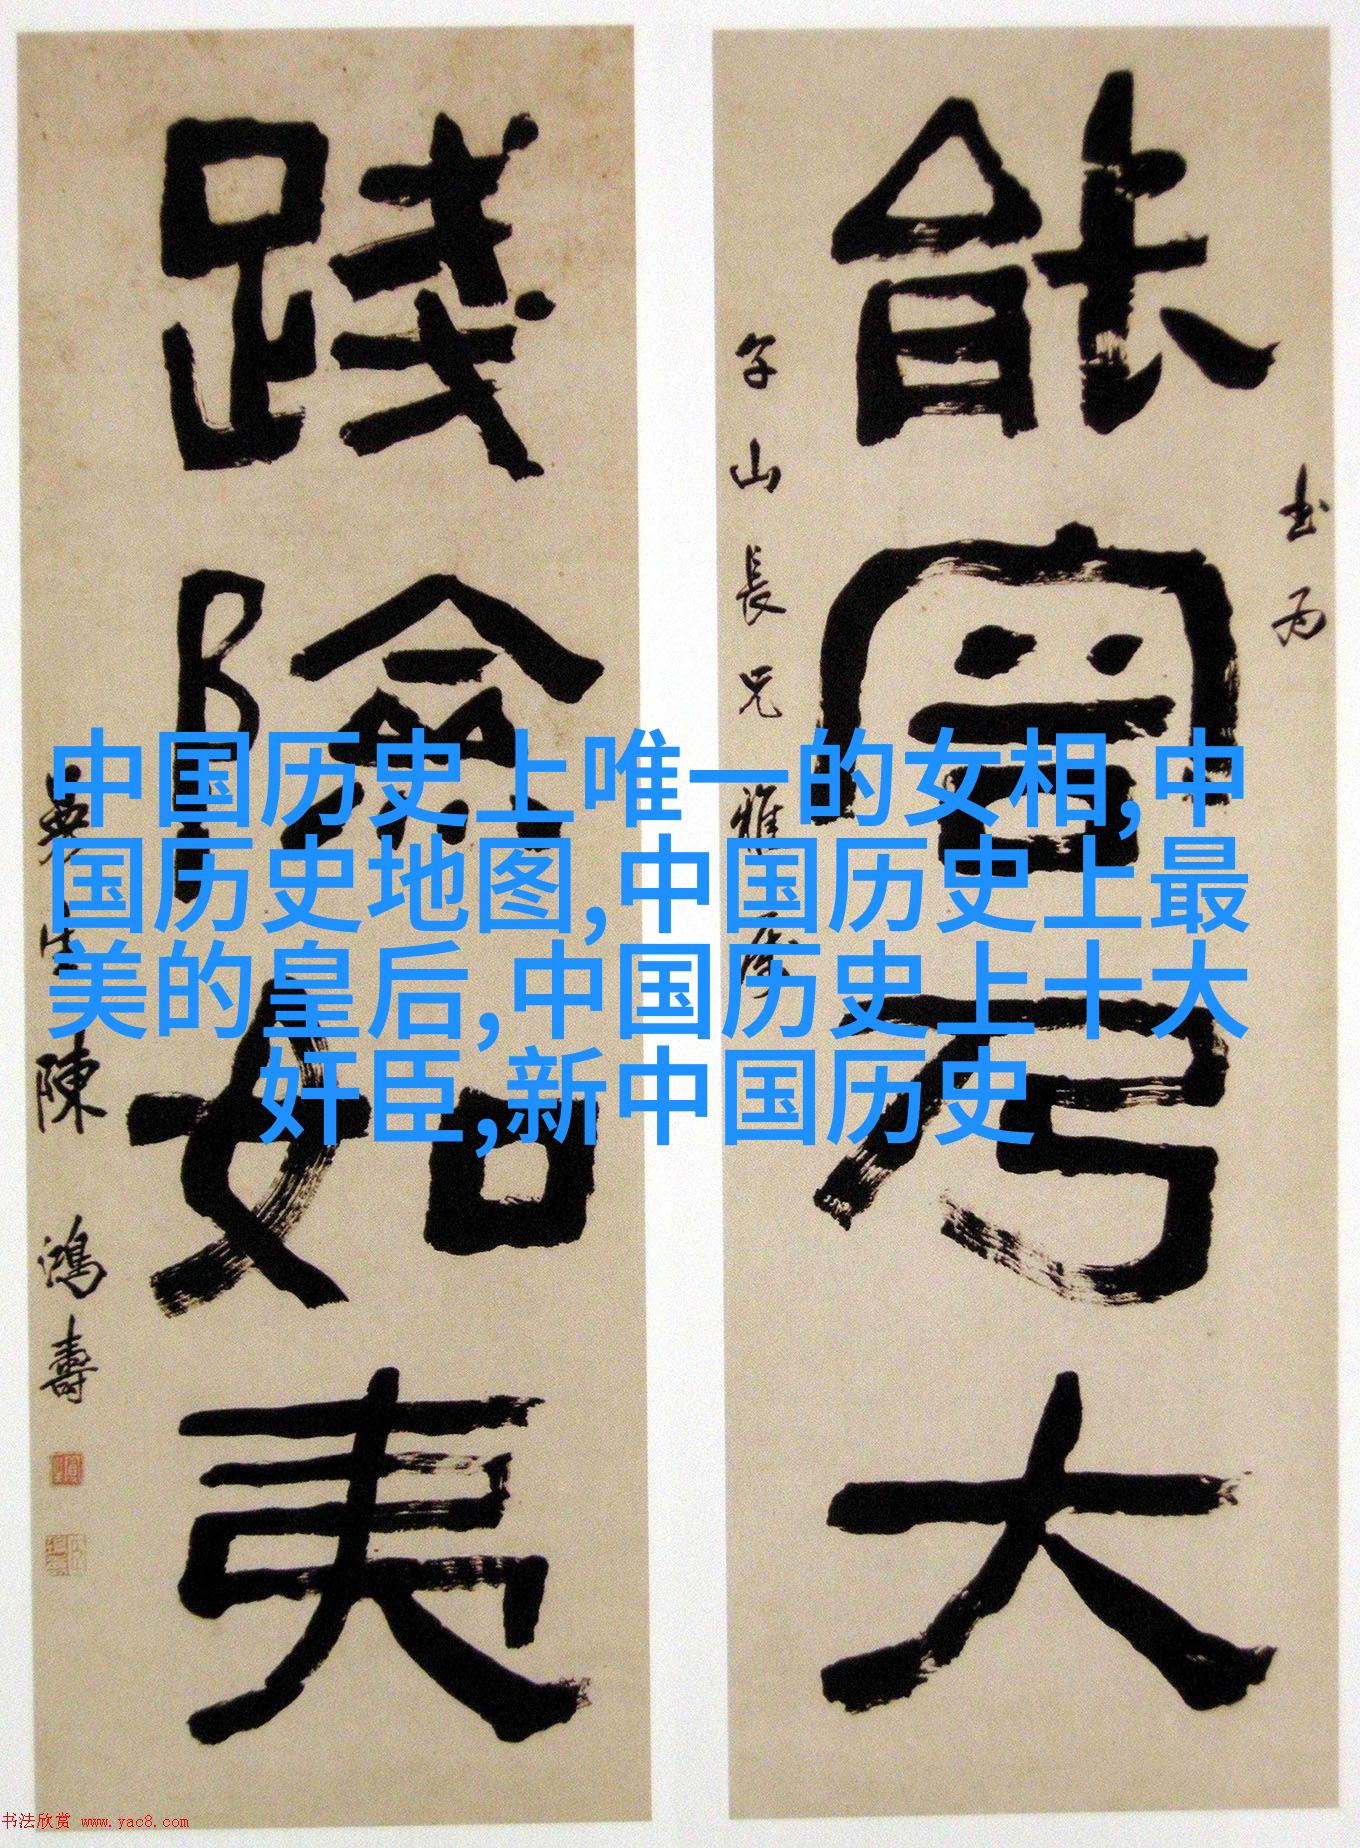 中国历史上唯一的女相,中
国历史地图,中国历史上最
美的皇后,中国历史上十大
奸臣,新中国历史
书为
能容乃大
山長兄雅
踐險如夷
曼生陳鴻壽
书法欣赏 www.yac8.com